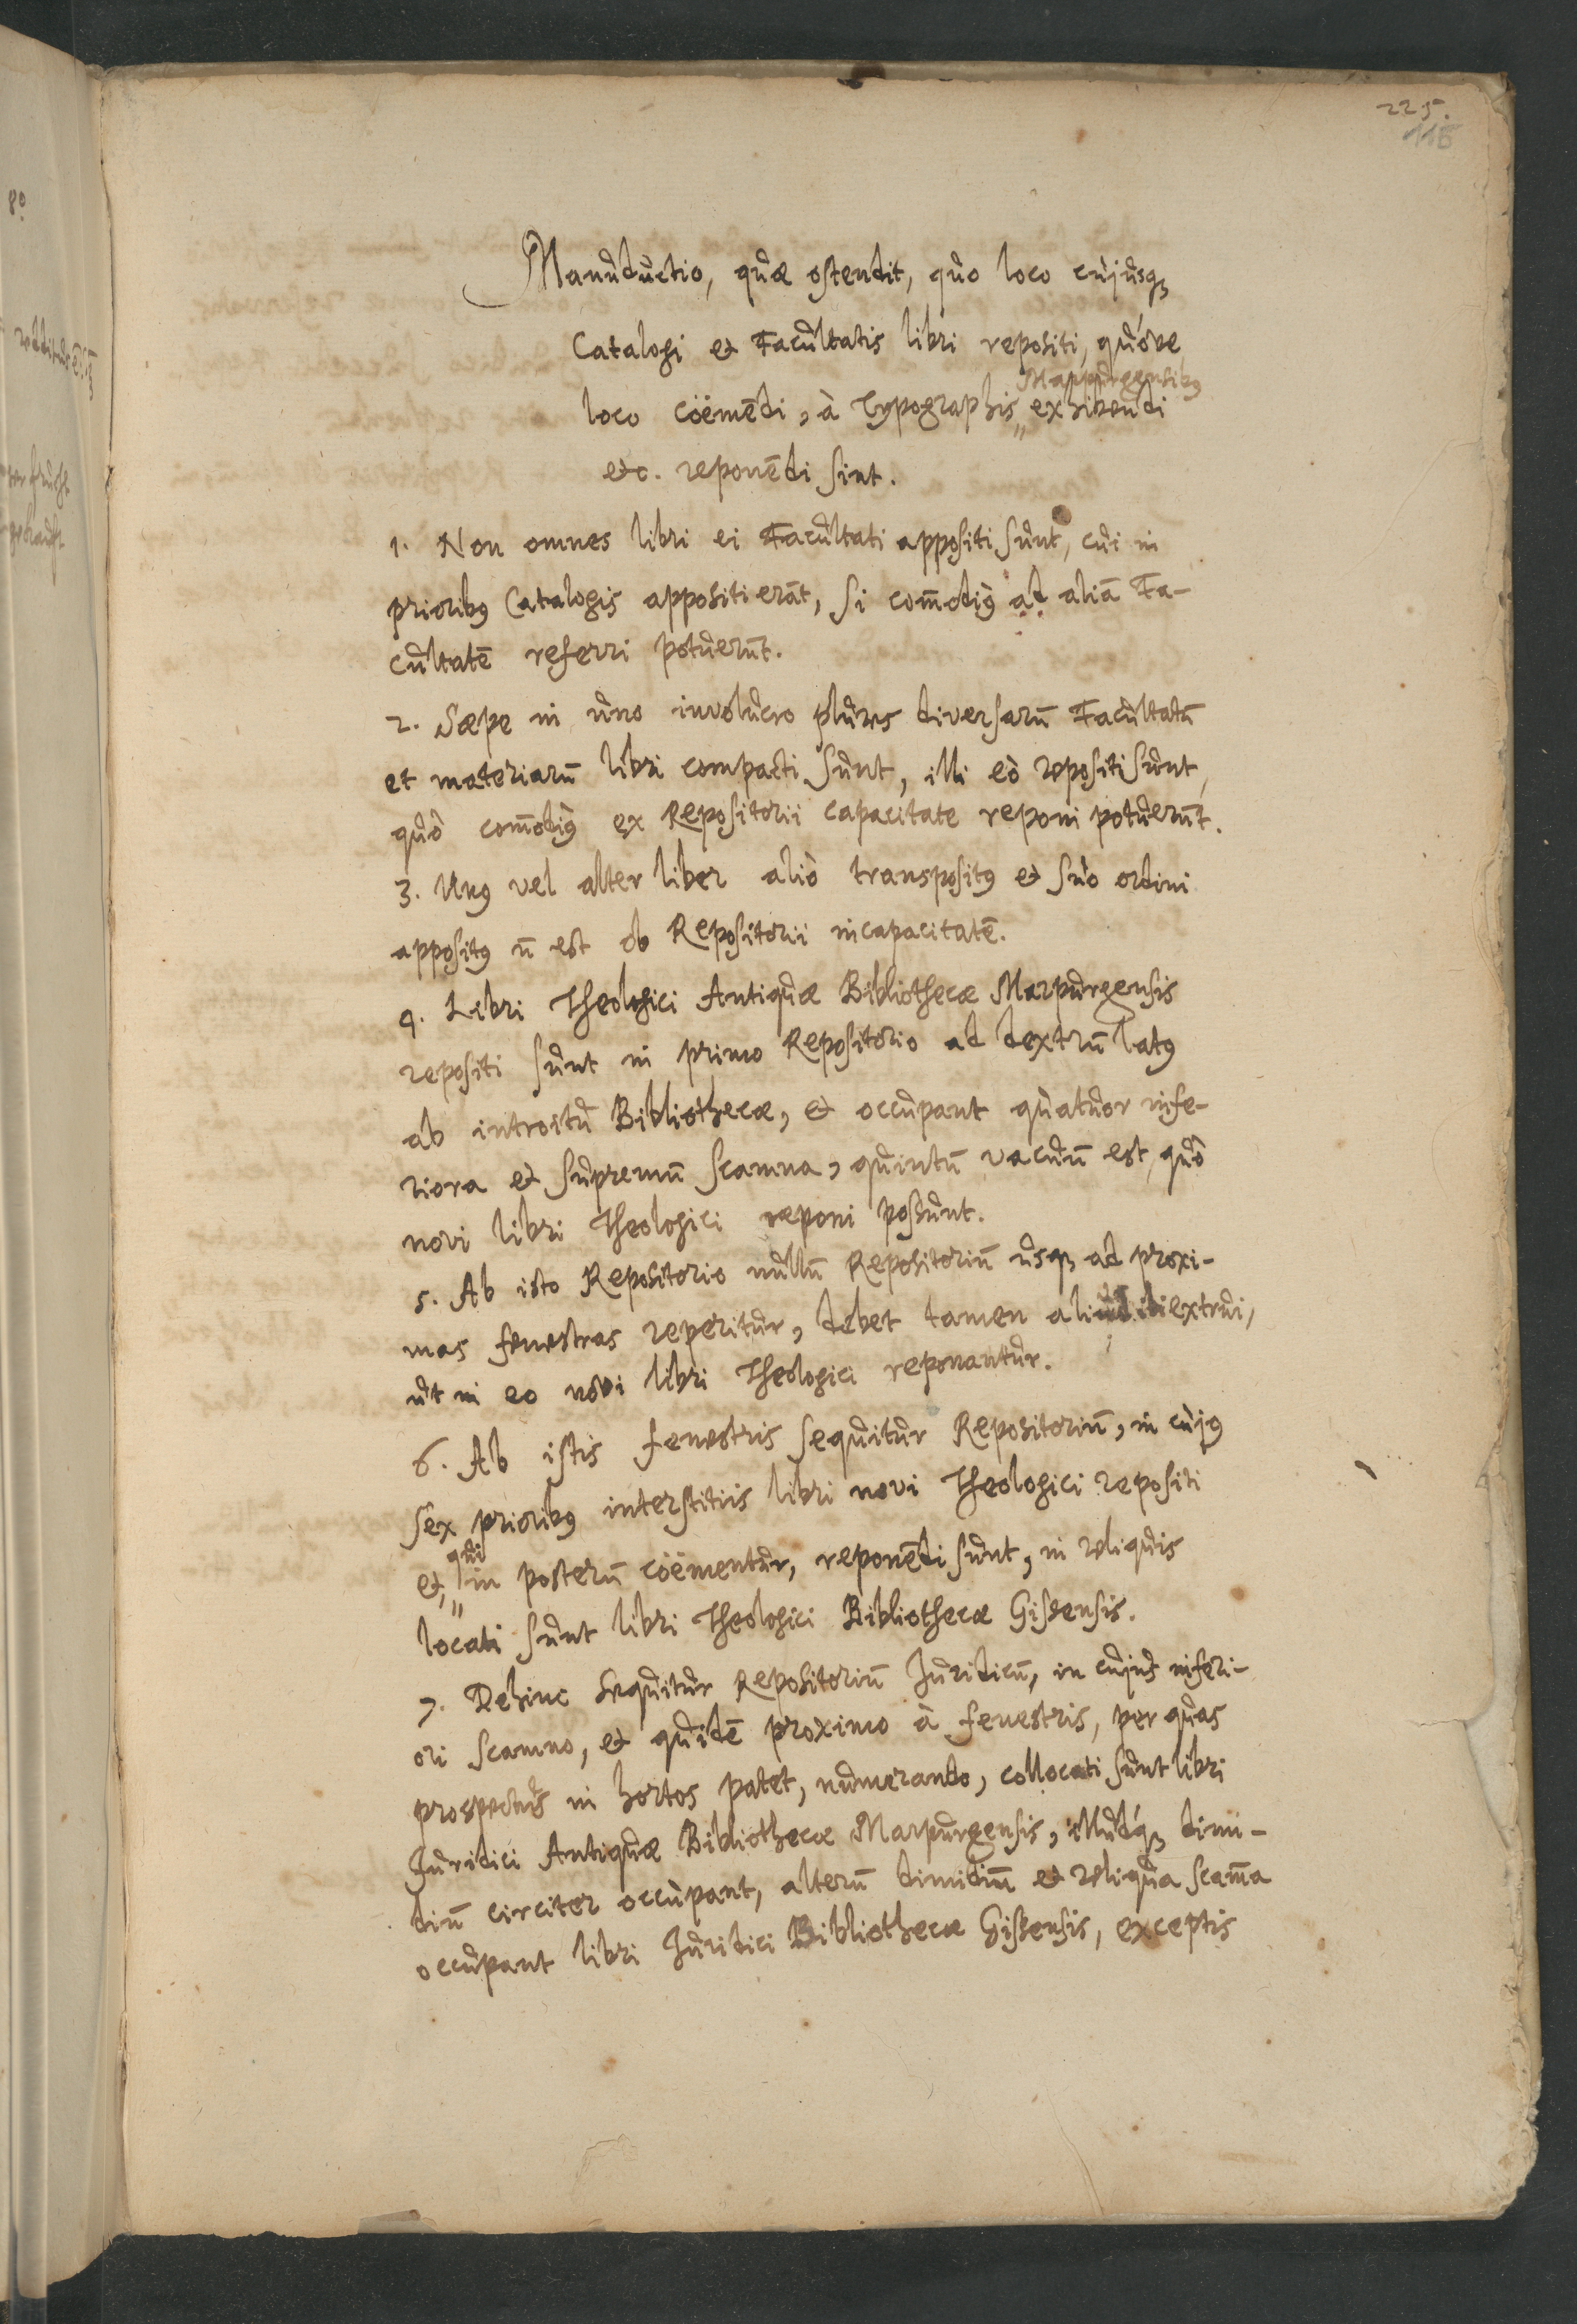 225.
116
8o
Manuductio, quæ ostendit, quo loco cujusq3
Catalogi et Facultatis libri repositi, quóve
Marpurgensibus
loco coëmēdi, à Typographis„ exhibendi
etc. reponēdi sint.
1. Non omnes libri ei Facultati appositi sunt, cui in
prioribꝰ Catalogis appositi erāt, si com̄odiꝰ ad aliā Fa-
cultatē referri potuerūt.
2. Sæpe in uno involucro plures diversarū Facultatū
et materiarū libri compacti sunt, illi eò repositi sunt,
quò com̄odiꝰ ex Repositorii capacitate reponi potuerūt.
3. Unꝰ vel alter liber aliò transpositꝰ et suo ordini
appositꝰ n̄ est ob Repositorii incapacitatē.
4. Libri Theologici Antiquæ Bibliothecæ Marpurgensis
repositi sunt in primo Repositorio ad dextrū latꝰ
ab introitu Bibliothecæ, et occupant quatuor infe-
riora et supremū scamna, quintū vacuū est, quò
novi libri Theologici reponi possunt.
5. Ab isto Repositorio nullū Repositoriū usq3 ad proxi-
mas fenestras reperitur, debet tamen aliud ibi extrui,
ut in eo novi libri Theologici reponantur.
6. Ab istis fenestris sequitur Repositoriū, in cujꝰ
sex prioribꝰ interstitiis libri novi Theologici repositi
qui
et,„ in posterū coëmentur, reponēdi sunt, in reliquis
locati sunt libri Theologici Bibliothecæ Gissensis.
7. Dehinc sequitur Repositoriū Juridicū, in cujus inferi-
ori scamno, et quidē proximo à fenestris, per quas
prospectus in hortos patet, numerando, collocati sunt libri
Juridici Antiquæ Bibliothecæ Marpurgensis, illudq́3 dimi-
diū circiter occupant, alterū dimidiū et reliqua scam̄a
occupant libri Juridici Bibliothecæ Gissensis, exceptis